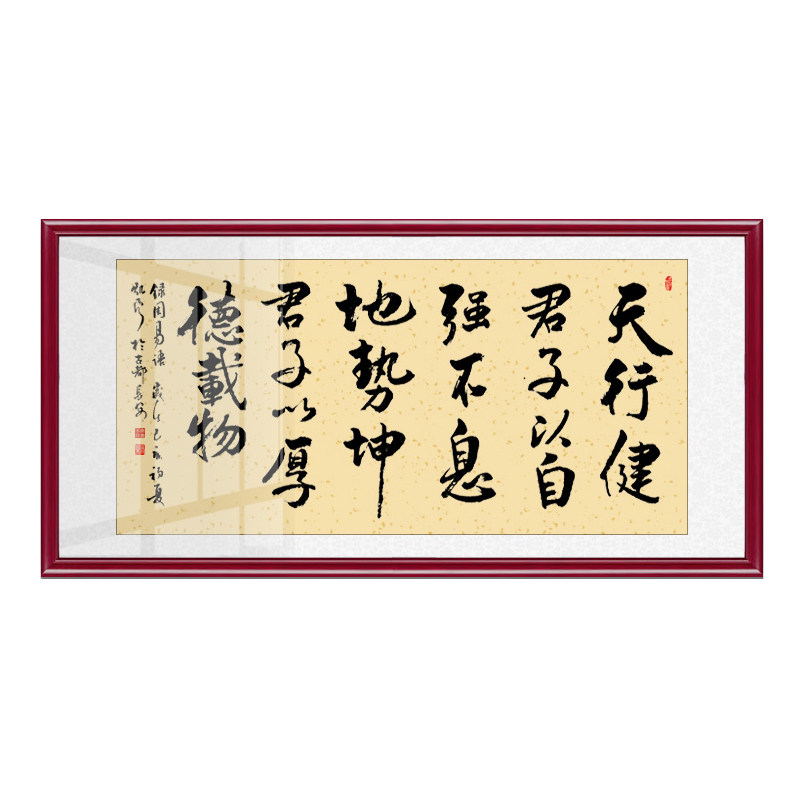 天行健
君子以自
强不息
地勢坤
君子以厚
德載物
録周易語 歲次己亥初夏
於古都長安